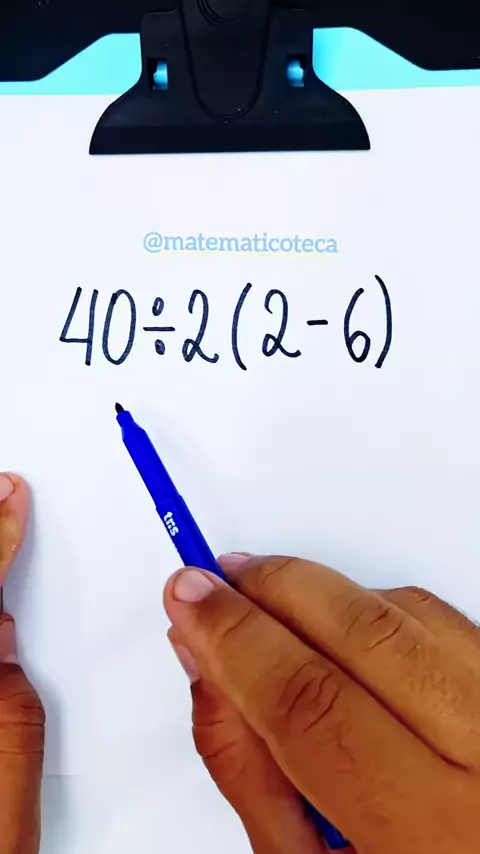 @matematicoteca
40÷2(2-6)
trs